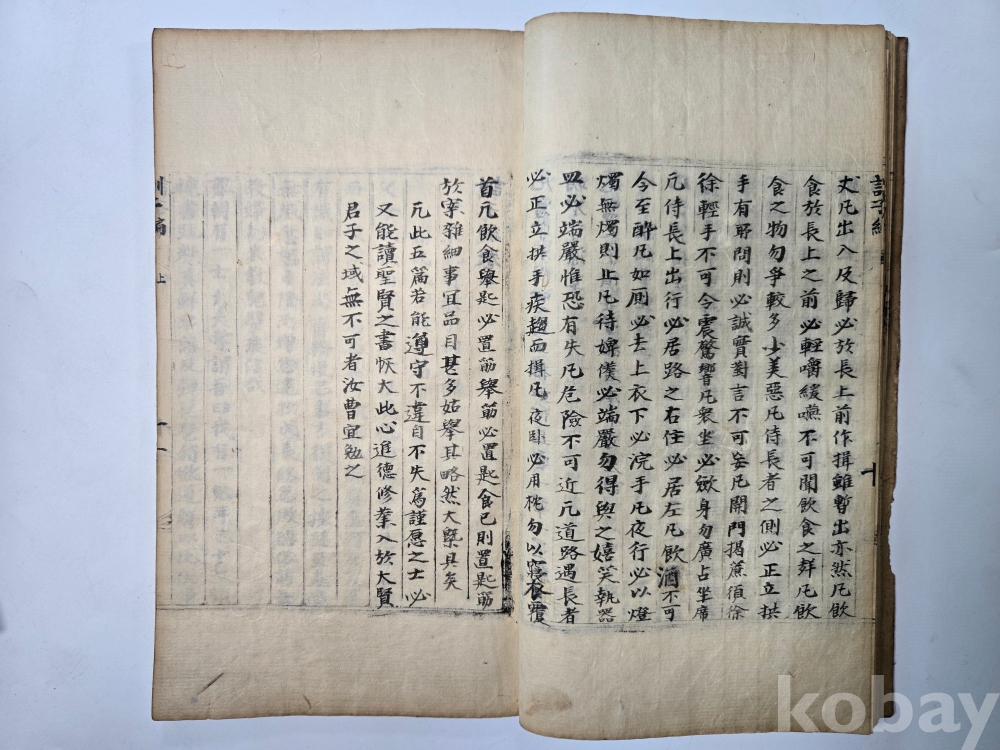 丈凡出入及歸必於長上前作揖雖暫出亦然凡飮
食於長上之前必輕嚼緩嚥不可聞飮食之聲凡飮
食之物勿爭較多少美惡凡侍長者之側必正立拱
手有所問則必誠實對言不可妄凡開門揭簾須徐
徐輕手不可令震驚響凡衆坐必斂身勿廣占坐席
凡侍長上出行必居路之右住必居左凡飮酒不可
令至醉凡如厠必去上衣下必浣手凡夜行必以燈
燭無燭則止凡待婢僕必端嚴勿得與之嬉笑執器
皿必端嚴惟恐有失凡危險不可近凡道路遇長者
必正立拱手疾趨而揖凡夜臥必用枕勿以寢衣覆
首凡飮食擧匙必置筯擧筯必置匙食已則置匙筯
於案雜細事宜品目甚多姑擧其略然大槩具矣
凡此五篇若能遵守不違自不失爲謹愿之士必
又能讀聖賢之書恢大此心進德修業入於大賢
君子之域無不可者汝曹宜勉之
上